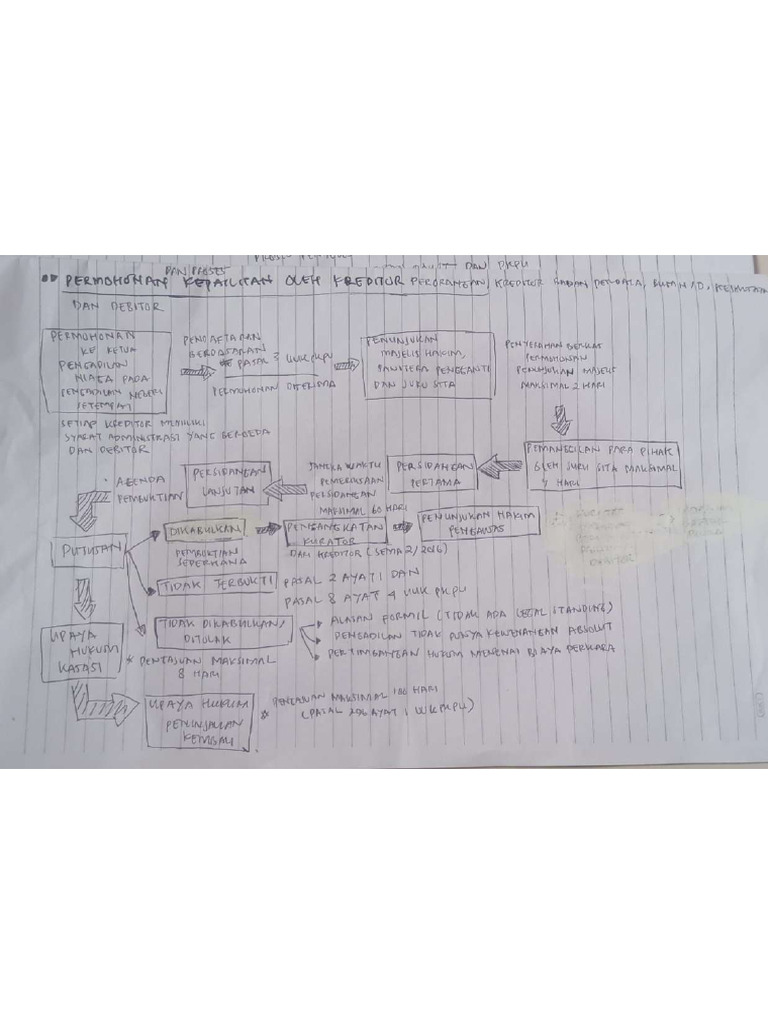 DAN PKPU
DAN PROSES
PERMOHONAN KEPAILITAN OLEH KREDITOR PERORANGAN, KREDITOR
DAN DEBITOR
PERMOHONAN
KE KETUA
PENGADILAN
NIAGA PADA
PENGADILAN NEGERI
SETEMPAT
SETIAP KREDITOR MEMILIKI
SYARAT ADMINISTRASI YANG BERBEDA
DAN DEBITOR
PENDAFTARAN
BERDASARAN
PASAL 3 UUK PKPU
PERMOHONAN DITERIMA
PENUNJUKAN
MAJELIS HAKIM,
PANITERA PENGGANTI
DAN JURU SITA
PENYERAHAN BERKAS
PERMOHONAN
PENUNJUKAN MAJELIS
MAKSIMAL 2 HARI
PEMANGGILAN PARA PIHAK
OLEH JURU SITA MAKSIMAL
HARI
PERSIDANGAN
PERTAMA
JANGKA WAKTU
PEMERIKSAAN
PERSIDANGAN
MAKSIMAL 60 HARI
PERSIDANGAN
LANJUTAN
• AGENDA
PEMBUKTIAN
PUTUSAN
DIKABULKAN
PEMBUKTIAN
SEDERHANA
PENGANGKATAN
KURATOR
DARI KREDITOR (SEMA 2/2016)
PENUNJUKAN HAKIM
PENGAWAS
DEBITOR
TIDAK TERBUKTI
PASAL 2 AYAT 1 DAN
PASAL 8 AYAT 4 UUK PKPU
TIDAK DIKABULKAN/
DITOLAK
ALASAN FORMIL (TIDAK ADA LEGAL STANDING)
PENGADILAN TIDAK PUNYA KEWENANGAN ABSOLUT
PERTIMBANGAN HUKUM MENGENAI BIAYA PERKARA
UPAYA
HUKUM
KASASI
* PENGAJUAN MAKSIMAL
8 HARI
UPAYA HUKUM
PENINJAUAN
KEMBALI
* MAKSIMAL 180 HARI
(PASAL 296 AYAT 1 UUK PKPU)